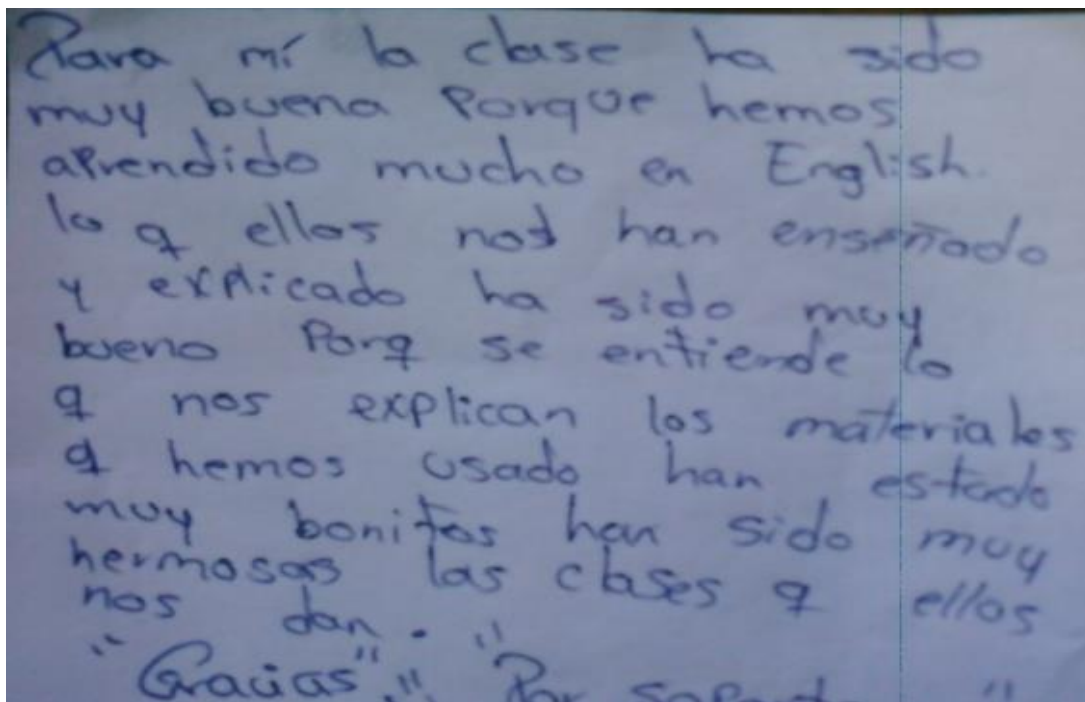 Para mí la clase ha sido
muy buena Porque hemos
aprendido mucho en English.
lo q ellos nos han enseñado
y explicado ha sido muy
bueno Porq se entiende lo
q nos explican los materiales
q hemos usado han estado
muy bonitos han sido muy
hermosas las clases q ellos
nos dan.
"Gracias"." Por